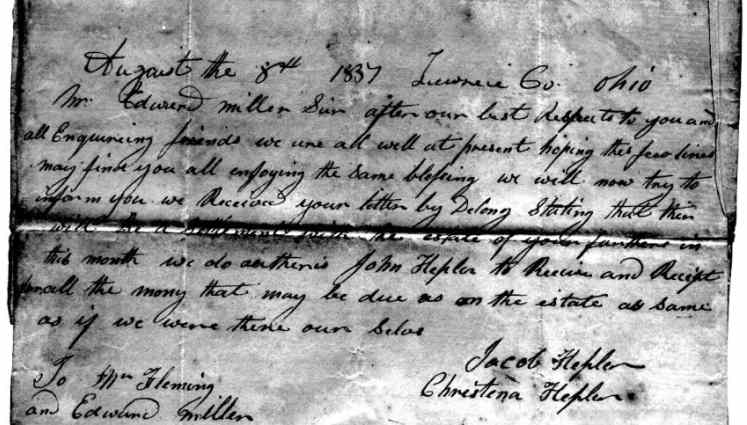 August the 8th 1837 Lawrence Co. Ohio
Mr. Edward miller Sir after our best Respects to you and
all Enquireing friends we are all well at present hoping this few lines
may find you all enjoying the same blessing we will now try to
inform you we Received your letter by Delong Stating that their
will be a settlement the estate of your farthers in
this month we do autheris John Hepler to Receive and Receipt
for all the mony that may be due us on the estate as same
as if we were there our Selvs
Jacob Hepler
Christena Hepler
To Mr Fleming
and Edward miller